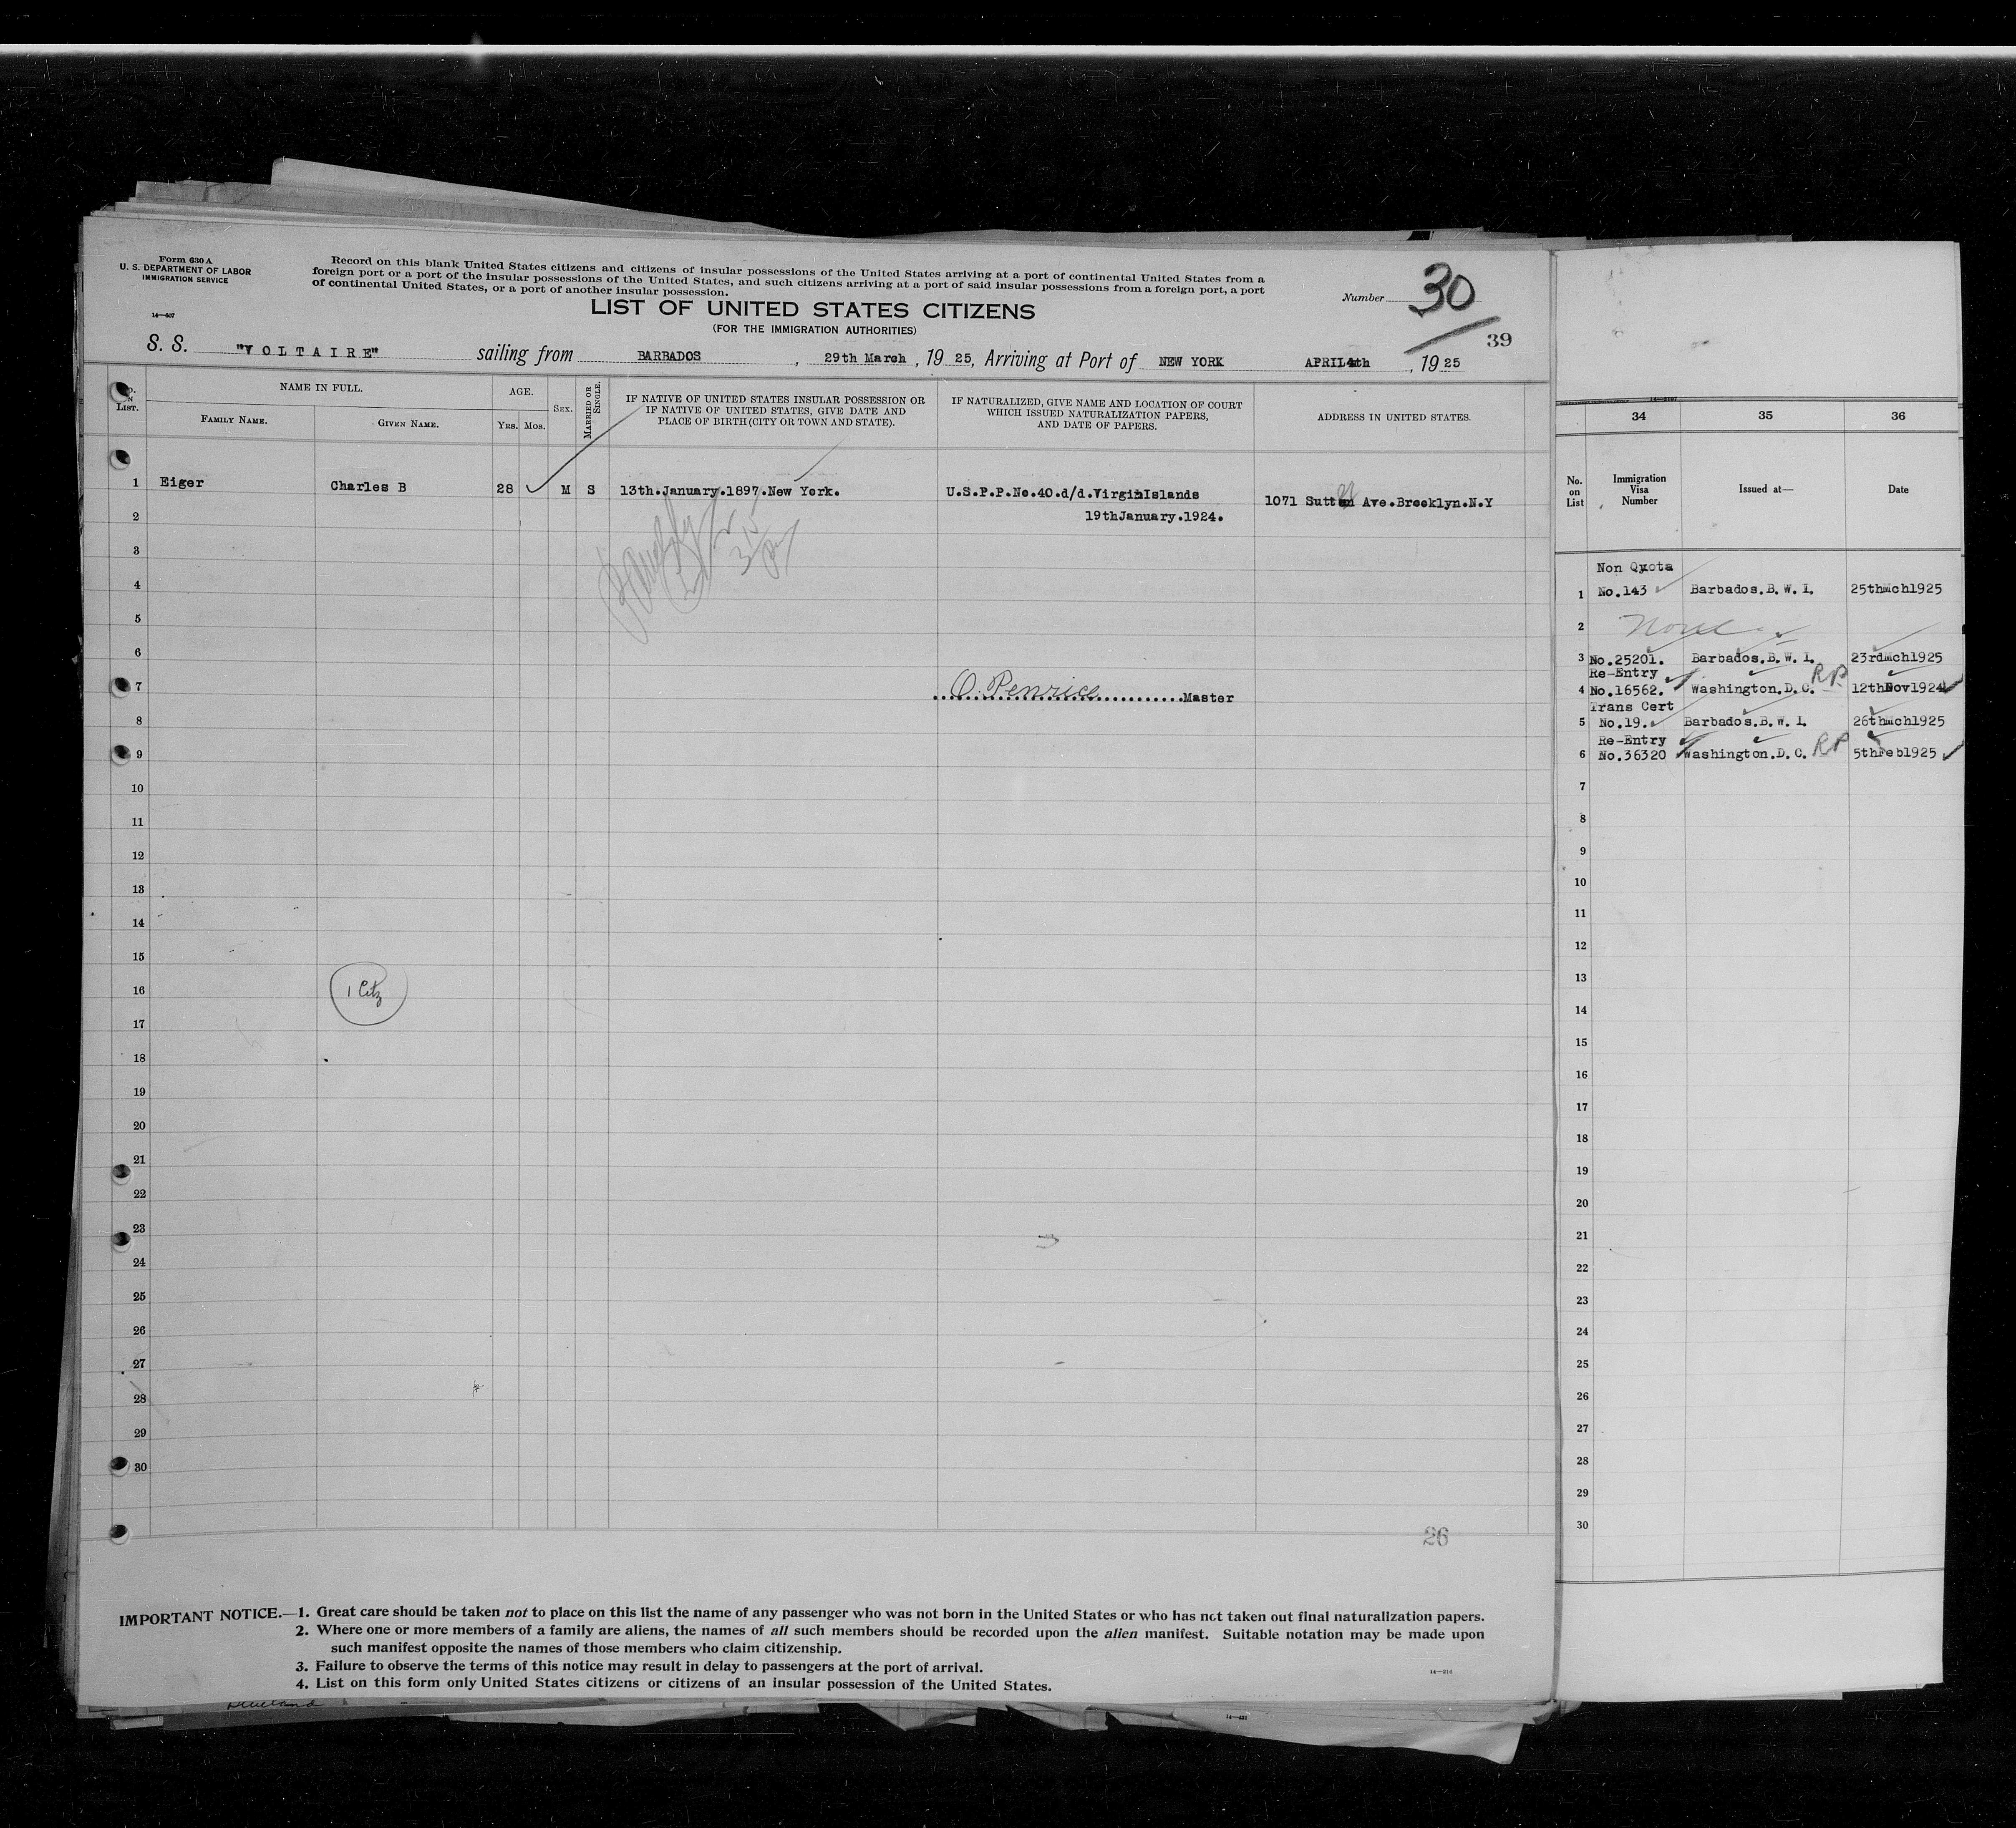 Form 630 A
U. S. DEPARTMENT OF LABOR
IMMIGRATION SERVICE
14—607
Record on this blank United States citizens and citizens of insular possessions of the United States arriving at a port of continental United States from a
foreign port or a port of the insular possessions of the United States, and such citizens arriving at a port of said insular possessions from a foreign port, a port
of continental United States, or a port of another insular possession.
LIST OF UNITED STATES CITIZENS
(FOR THE IMMIGRATION AUTHORITIES)
Number 30
39
S. S. "VOLTAIRE" sailing from BARBADOS, 29th March, 1925, Arriving at Port of NEW YORK APRIL4th, 1925
LIST.
NAME IN FULL.
FAMILY NAME.
GIVEN NAME.
AGE.
YRS.
MOS.
SEX.
MARRIED OR SINGLE.
IF NATIVE OF UNITED STATES INSULAR POSSESSION OR
IF NATIVE OF UNITED STATES, GIVE DATE AND
PLACE OF BIRTH (CITY OR TOWN AND STATE).
IF NATURALIZED, GIVE NAME AND LOCATION OF COURT
WHICH ISSUED NATURALIZATION PAPERS,
AND DATE OF PAPERS.
ADDRESS IN UNITED STATES.
1 Eiger Charles B 28 M S 13th.January.1897.New York. U.S.P.P.No.40.d/d.VirginIslands 1071 Sutton Ave.Brooklyn.N.Y
2 19thJanuary.1924.
3
4
5
6
7 O. Penrice Master
8
9
10
11
12
13
14
15
16 1 Citz
17
18
19
20
21
22
23
24
25
26
27
28
29
30
26
IMPORTANT NOTICE.—1. Great care should be taken not to place on this list the name of any passenger who was not born in the United States or who has not taken out final naturalization papers.
2. Where one or more members of a family are aliens, the names of all such members should be recorded upon the alien manifest. Suitable notation may be made upon
such manifest opposite the names of those members who claim citizenship.
3. Failure to observe the terms of this notice may result in delay to passengers at the port of arrival.
4. List on this form only United States citizens or citizens of an insular possession of the United States.
14—214
34 35 36
No. on List
Immigration Visa Number
Issued at—
Date
Non Quota
1 No.143 Barbados.B.W.I. 25thMch1925
2 None
3 No.25201. Barbados.B.W.I. 23rdMch1925
Re-Entry
4 No.16562. Washington.D.C. RP 12thNov1924
Trans Cert
5 No.19. Barbados.B.W.I. 26thMch1925
Re-Entry
6 No.36320 Washington.D.C. RP 5thFeb1925
7
8
9
10
11
12
13
14
15
16
17
18
19
20
21
22
23
24
25
26
27
28
29
30